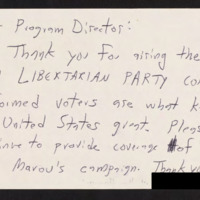 Program Director:
Thank you for airing the
LIBERTARIAN PARTY con
formed voters are what k
United States great. Pleas
inue to provide coverage of
Marou's campaign. Thank you